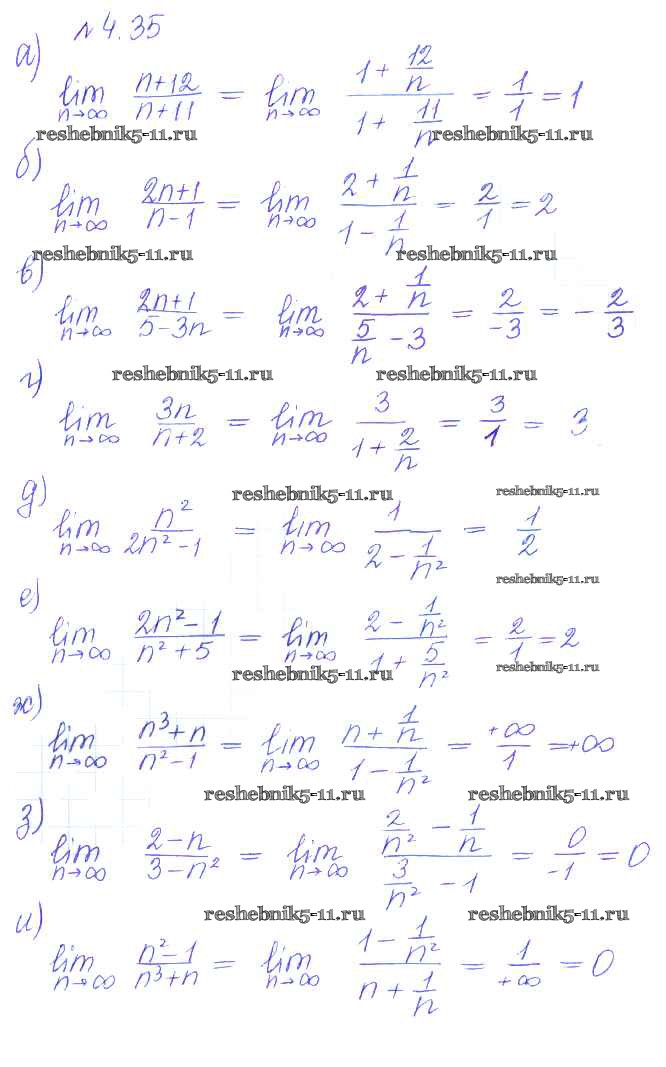 №4.35
а)
lim n→∞ (n+12)/(n+11) = lim n→∞ (1 + 12/n)/(1 + 11/n) = 1/1 = 1
reshebnik5-11.ru reshebnik5-11.ru
б)
lim n→∞ (2n+1)/(n-1) = lim n→∞ (2 + 1/n)/(1 - 1/n) = 2/1 = 2
reshebnik5-11.ru reshebnik5-11.ru
в)
lim n→∞ (2n+1)/(5-3n) = lim n→∞ (2 + 1/n)/(5/n - 3) = 2/-3 = - 2/3
reshebnik5-11.ru reshebnik5-11.ru
г)
lim n→∞ 3n/(n+2) = lim n→∞ 3/(1 + 2/n) = 3/1 = 3
reshebnik5-11.ru reshebnik5-11.ru
д)
lim n→∞ n²/(2n²-1) = lim n→∞ 1/(2 - 1/n²) = 1/2
reshebnik5-11.ru
е)
lim n→∞ (2n²-1)/(n²+5) = lim n→∞ (2 - 1/n²)/(1 + 5/n²) = 2/1 = 2
reshebnik5-11.ru reshebnik5-11.ru
ж)
lim n→∞ (n³+n)/(n²-1) = lim n→∞ (n + 1/n)/(1 - 1/n²) = +∞/1 = +∞
reshebnik5-11.ru reshebnik5-11.ru
з)
lim n→∞ (2-n)/(3-n²) = lim n→∞ (2/n² - 1/n)/(3/n² - 1) = 0/-1 = 0
reshebnik5-11.ru reshebnik5-11.ru
и)
lim n→∞ (n²-1)/(n³+n) = lim n→∞ (1 - 1/n²)/(n + 1/n) = 1/+∞ = 0